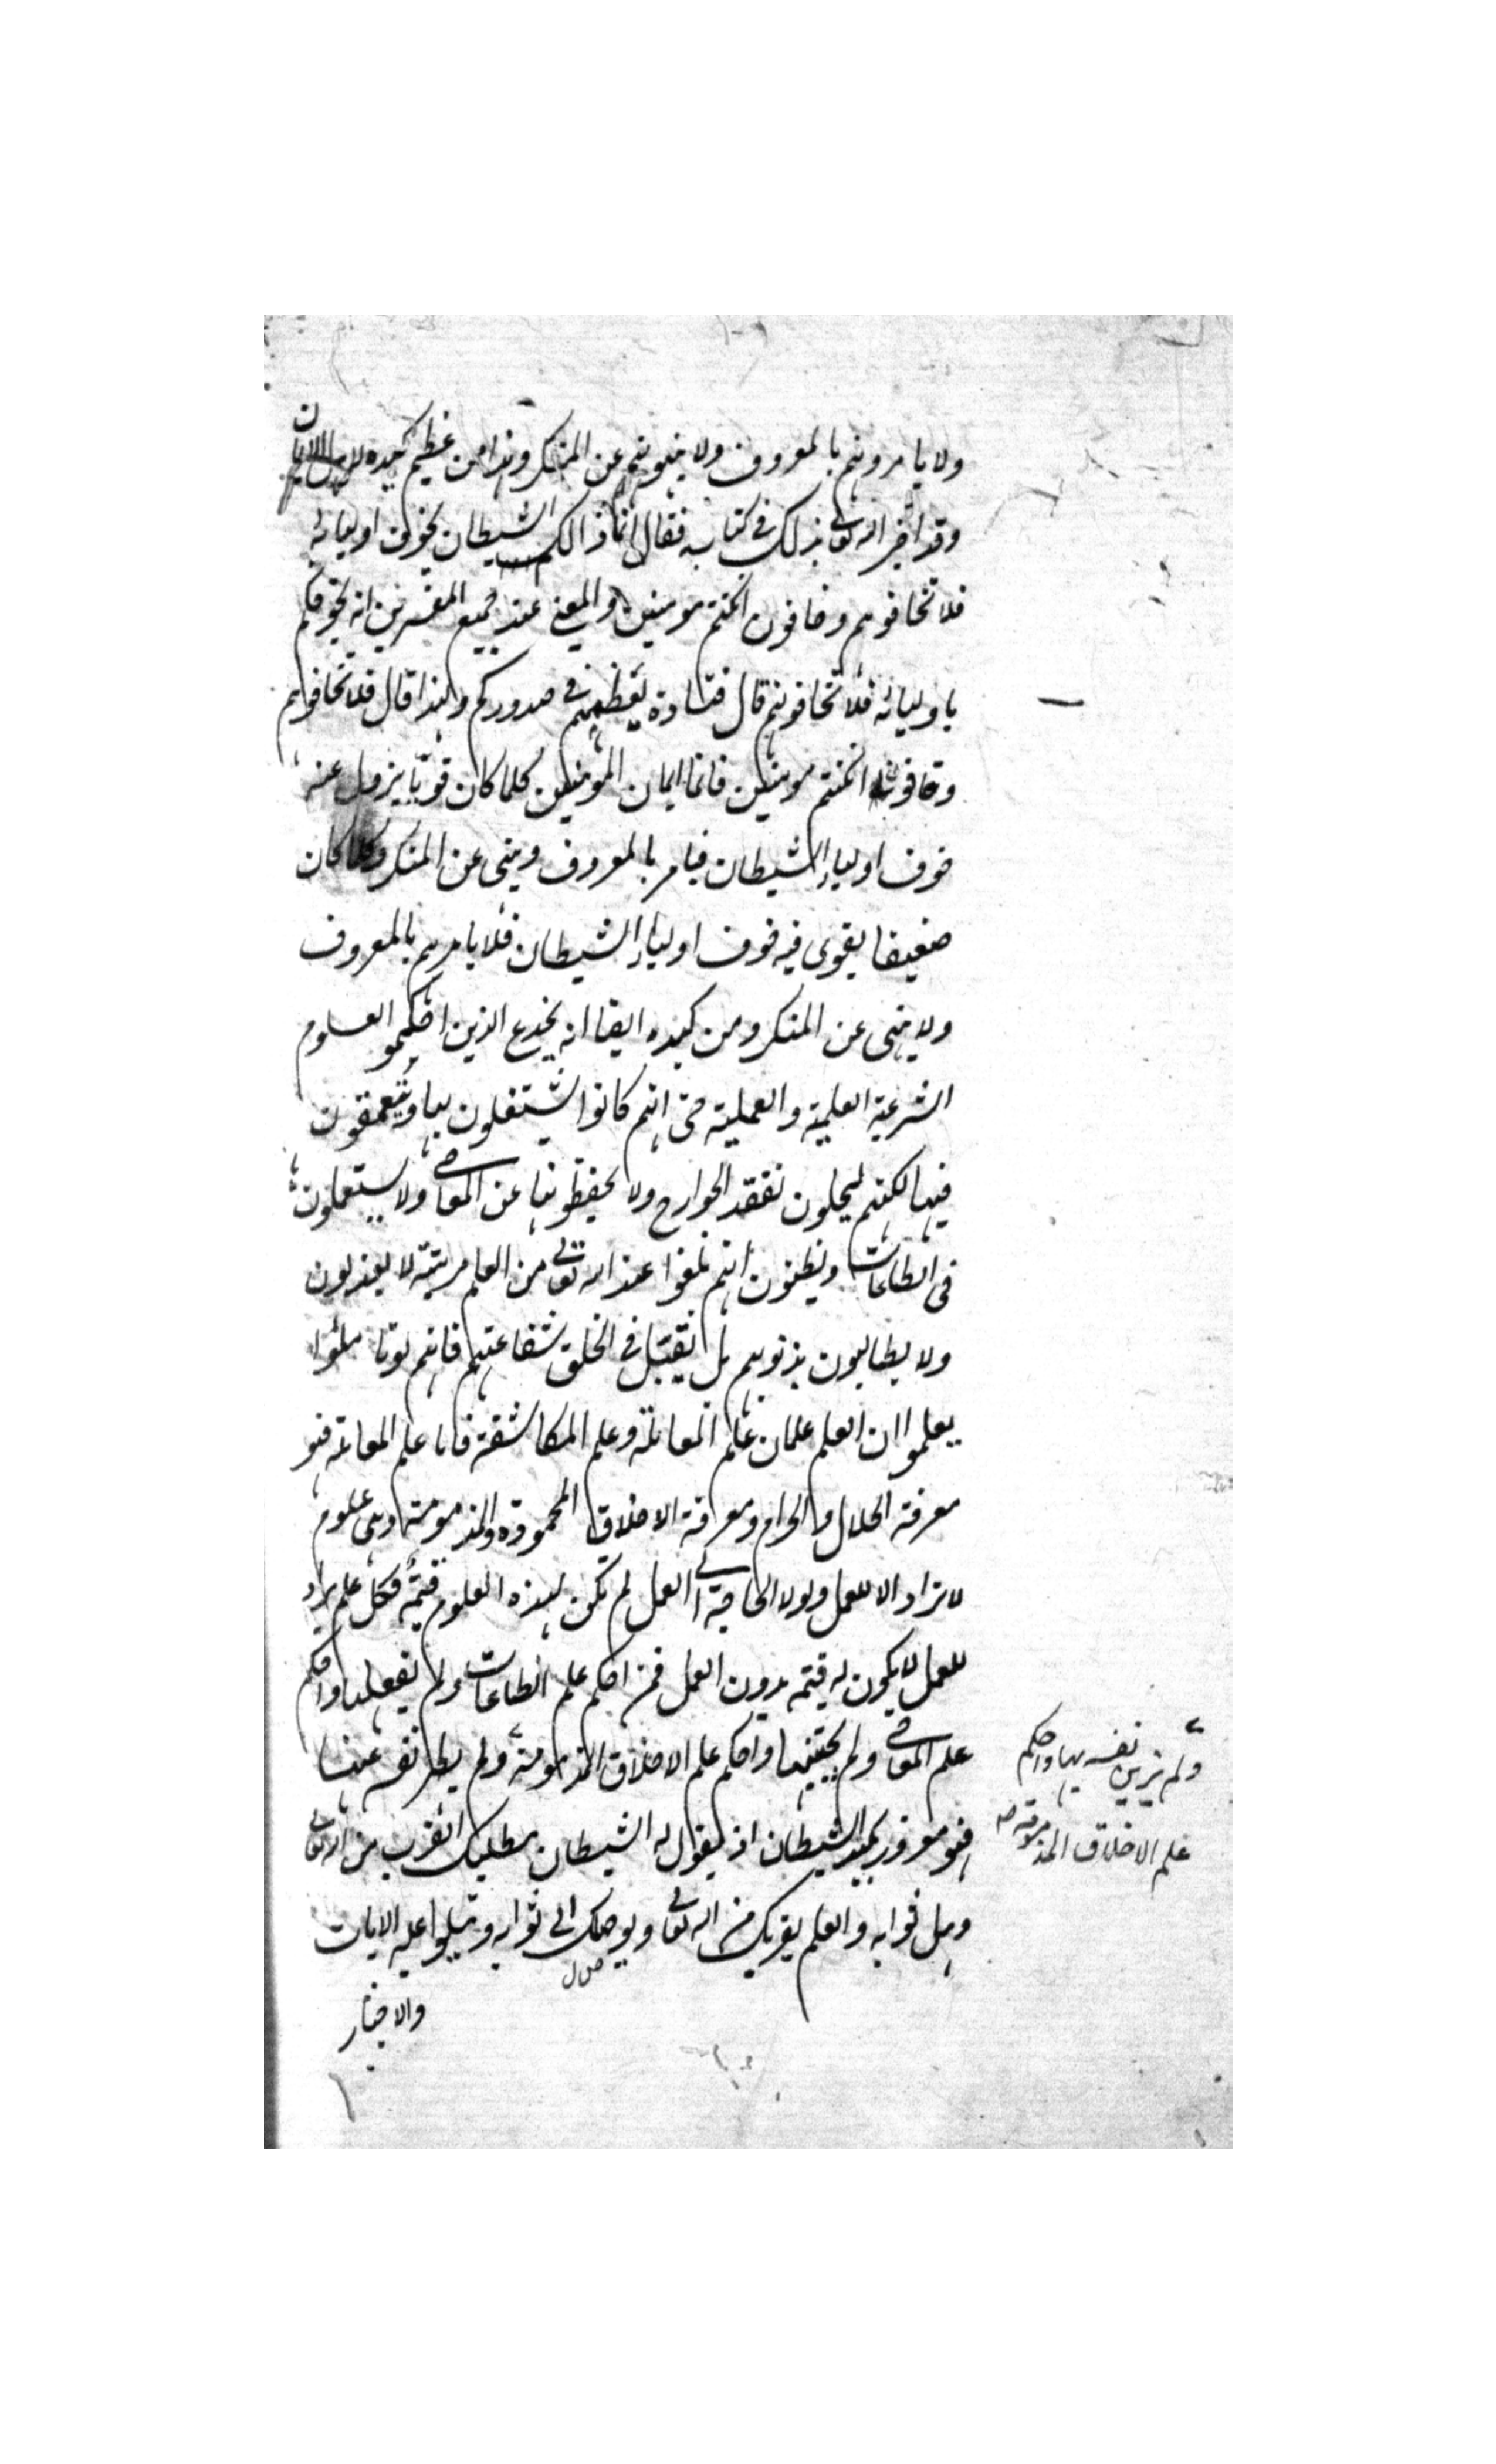 ولا يامرونهم بالمعروف ولا ينهونهم عن المنكر وهذا من عظيم كيده لاهل الايمان
وقد اخبر الله تعالى بذلك في كتابه فقال انما ذالكم الشيطان يخوف اوليائه
فلا تخافوهم وخافون ان كنتم مومنين والمعنى عند جميع المفسرين انه يخوفكم
باوليائه فلا تخافونهم قال قتادة يعظمهم في صدوركم ولهذا قال فلا تخافوهم
وخافون ان كنتم مومنين فانما ايمان المؤمنين كلما كان قويا يزول عنه
خوف اولياء الشيطان فيامر بالمعروف وينهى عن المنكر وكلما كان
ضعيفا يقوى فيه خوف اولياء الشيطان فلا يامرهم بالمعروف
ولا ينهى عن المنكر ومن كيده ايضا انه يخدع الذين احكموا العلوم
الشرعية العلمية والعملية حتى انهم كانوا يشتغلون بها ويتعمقون
فيها لكنهم يهملون تفقد الجوارح ولا يحفظونها عن المعاصي ولا يستعملونها
في الطاعات ويظنون انهم بلغوا عند الله تعالى من العلم مرتبة لا يعذبون
ولا يطالبون بذنوبهم بل يقبل في الخلق شفاعتهم فانهم لو تاملوا
يعلموا ان العلم علمان علم المعاملة وعلم المكاشفة فاما علم المعاملة فهو
معرفة الحلال والحرام ومعرفة الاخلاق المحمودة والمذمومة وهي علوم
لا تراد الا للعمل ولولا الحاجة الى العمل لم تكن لهذه العلوم قيمة فكل علم يراد
للعمل لا يكون له قيمة بدون العمل فمن احكم علم الطاعات ولم يفعلها واحكم
علم المعاصي ولم يجتنبها واحكم علم الاخلاق المذمومة ولم يطهر نفسه عنها
ولم يزين نفسه بها واحكم
علم الاخلاق المذمومة صح
فهو مغرور بكيد الشيطان اذ يقول له الشيطان مطلبك القرب من الله تعالى
ونيل ثوابه والعلم يقربك من الله تعالى ويوصلك الى ثوابه ويتلوا عليه الايات
والاخبار